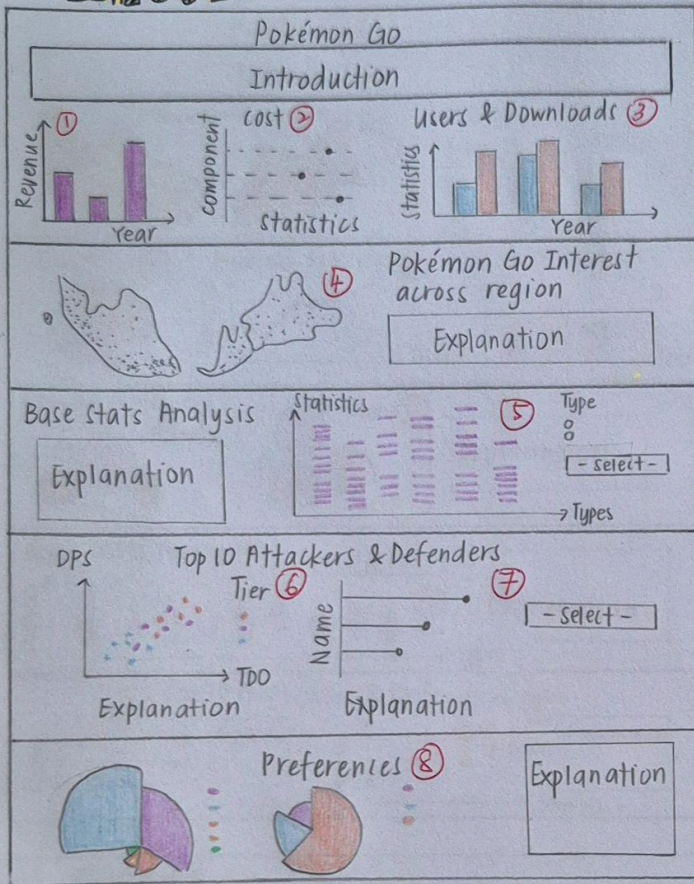 Pokémon Go
Introduction
①
Revenue
Year
cost ②
component
statistics
Users & Downloads ③
Statistics
Year
④
Pokémon Go Interest
across region
Explanation
Base Stats Analysis
Explanation
Statistics
⑤
Types
Type
- select -
Top 10 Attackers & Defenders
DPS
Tier ⑥
TDO
Explanation
⑦
Name
Explanation
- select -
Preferences ⑧
Explanation